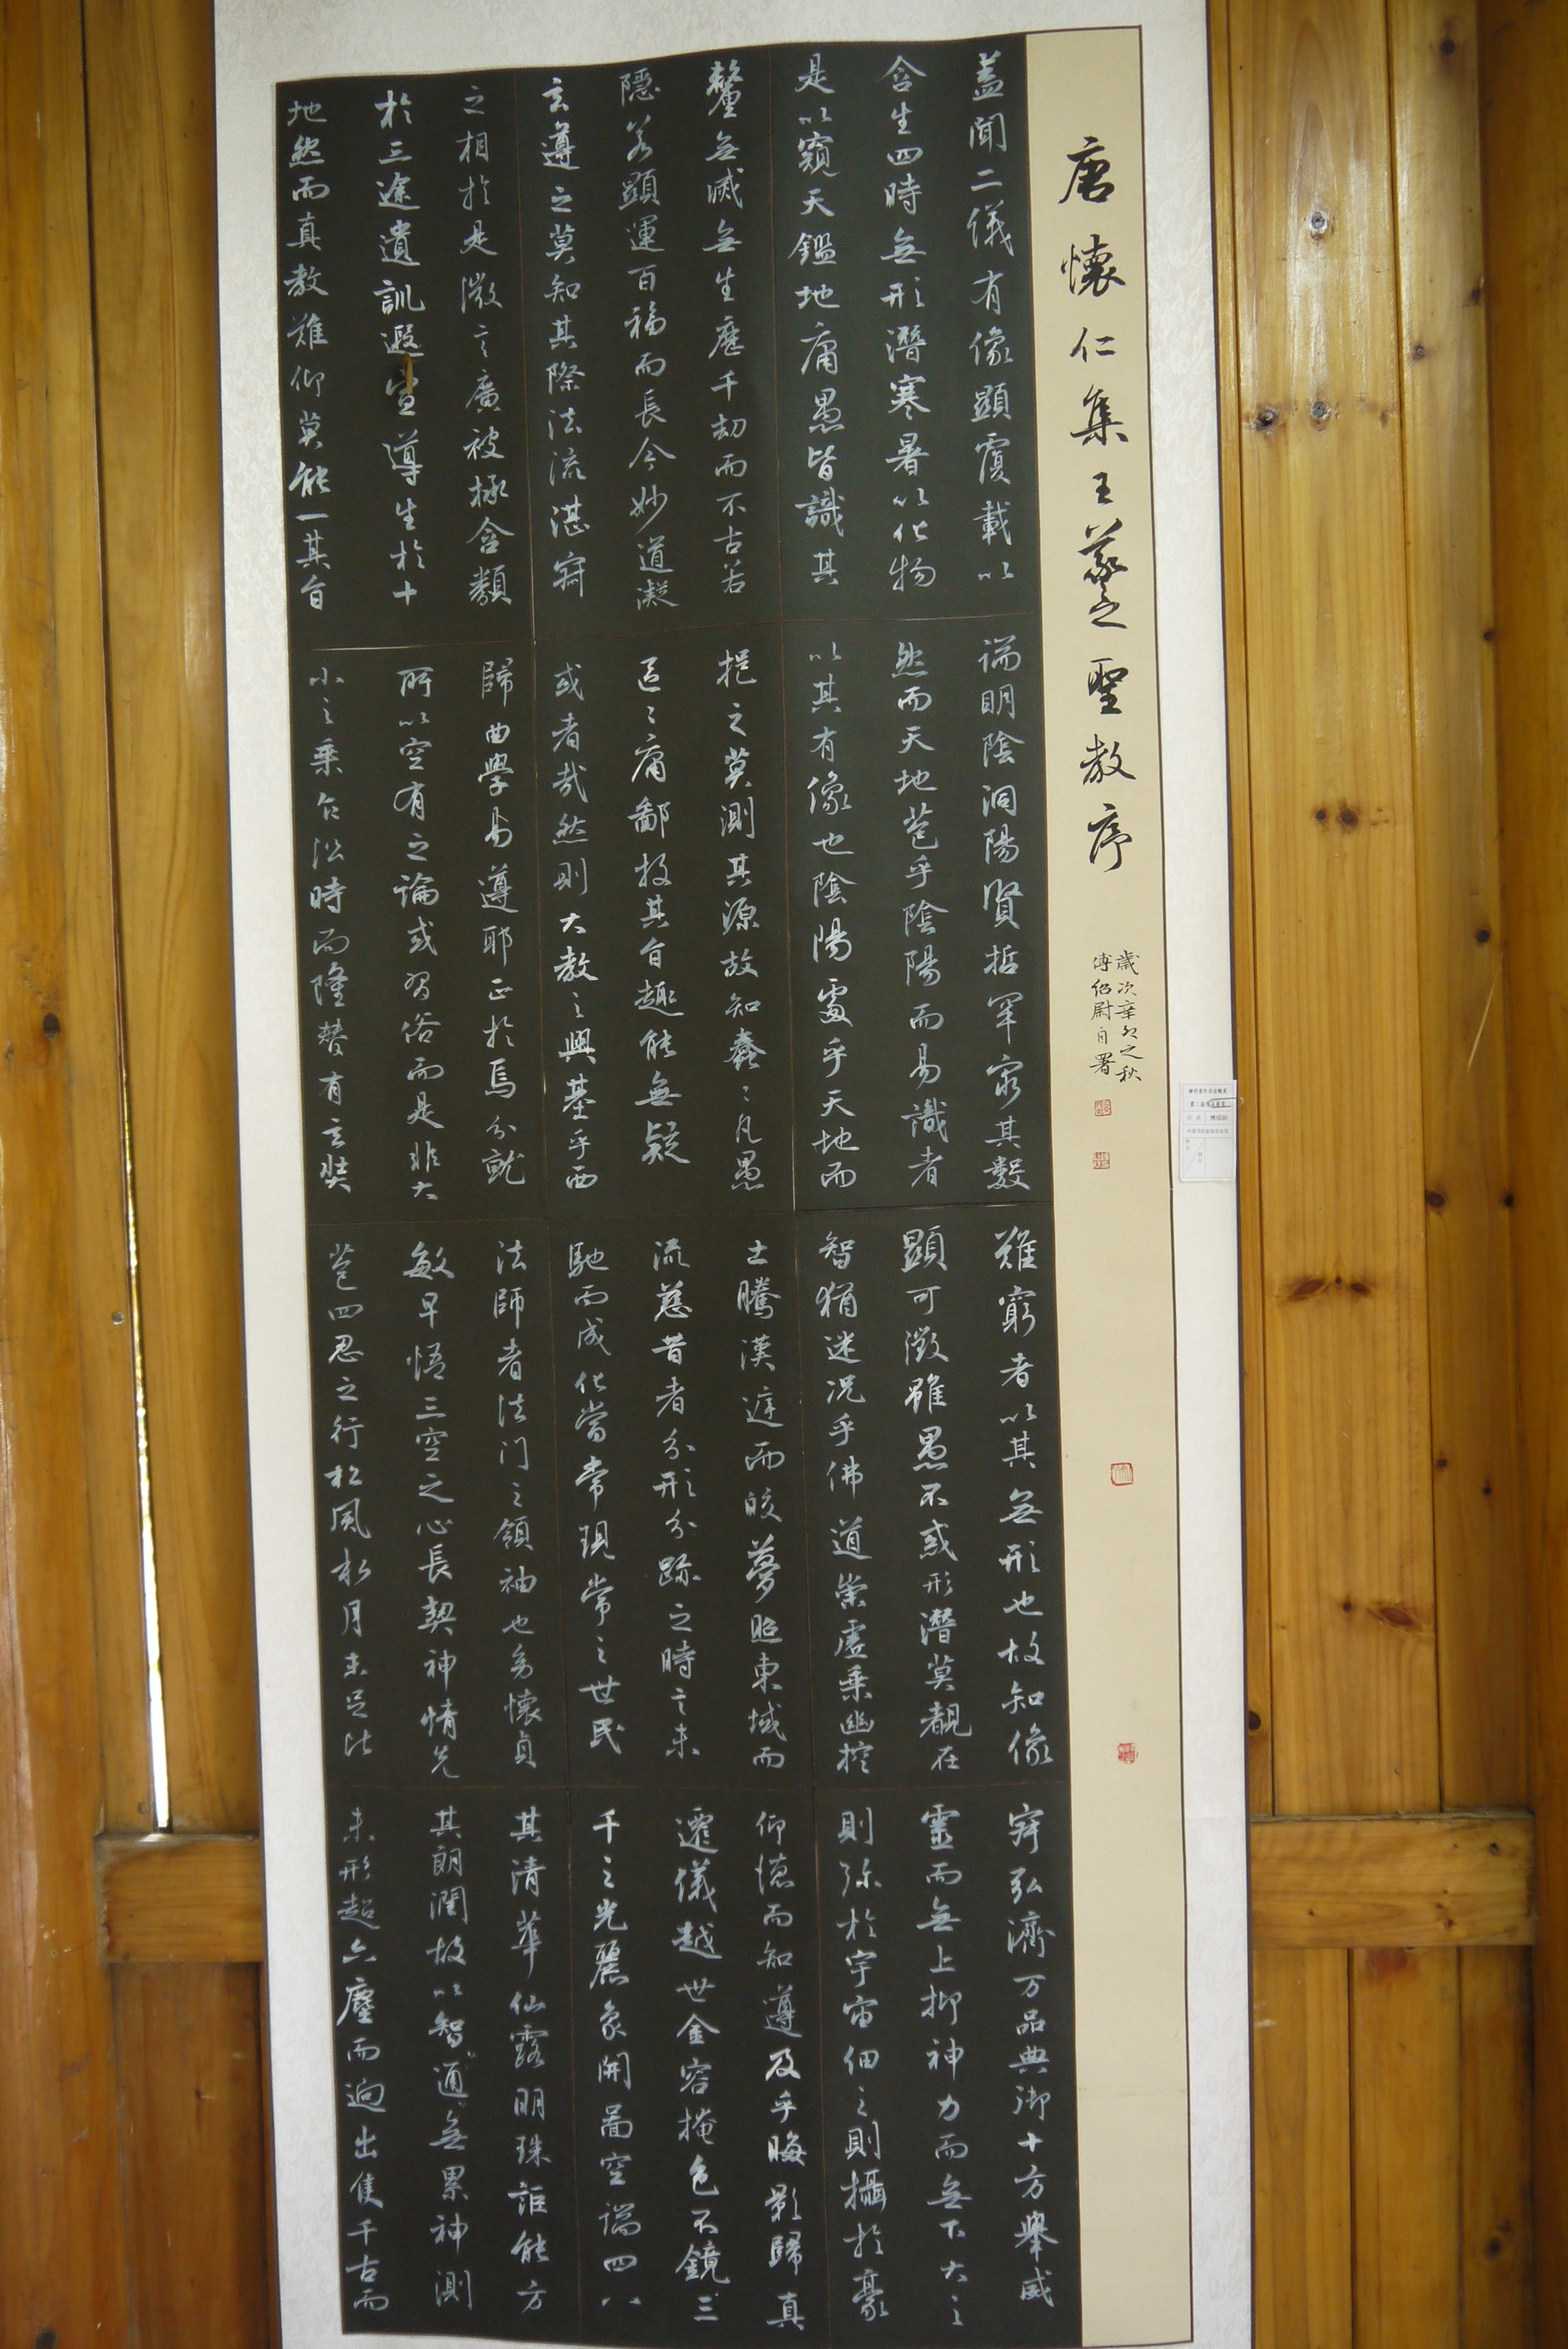 唐懷仁集王羲之聖教序
歲次辛卯之秋
傅紹尉自署
蓋聞二儀有像顯覆載以
含生四時無形潛寒暑以化物
是以窺天鑑地庸愚皆識其
端明陰洞陽賢哲罕窮其數
然而天地苞乎陰陽而易識者
以其有像也陰陽處乎天地而
難窮者以其無形也故知像
顯可徵雖愚不惑形潛莫覩在
智猶迷況乎佛道崇虛乘幽控
寂弘濟万品典御十方舉威
靈而無上抑神力而無下大之
則彌於宇宙細之則攝於豪
釐無滅無生歷千劫而不古若
隱若顯運百福而長今妙道凝
玄遵之莫知其際法流湛寂
挹之莫測其源故知蠢々凡愚
區々庸鄙投其旨趣能無疑
或者哉然則大教之興基乎西
土騰漢庭而皎夢照東域而
流慈昔者分形分跡之時言未
馳而成化當常現常之世民
仰德而知遵及乎晦影歸真
遷儀越世金容掩色不鏡三
千之光麗象開圖空端四八
之相於是微言廣被拯含類
於三途遺訓遐宣導生於十
地然而真教難仰莫能一其旨
歸曲學易遵耶正於焉紛糺
所以空有之論或習俗而是非大
小之乘乍沿時而隆替有玄奘
法師者法門之領袖也幼懷貞
敏早悟三空之心長契神情先
苞四忍之行松風水月未足比
其清華仙露明珠詎能方
其朗潤故以智通無累神測
未形超六塵而迥出隻千古而